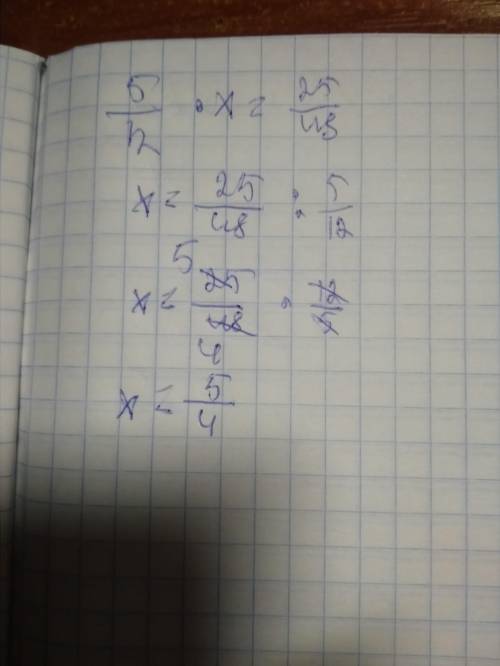 5/12 · x = 25/48
x = 25/48 : 5/12
x = 25/48 · 12/5 5 4
x = 5/4